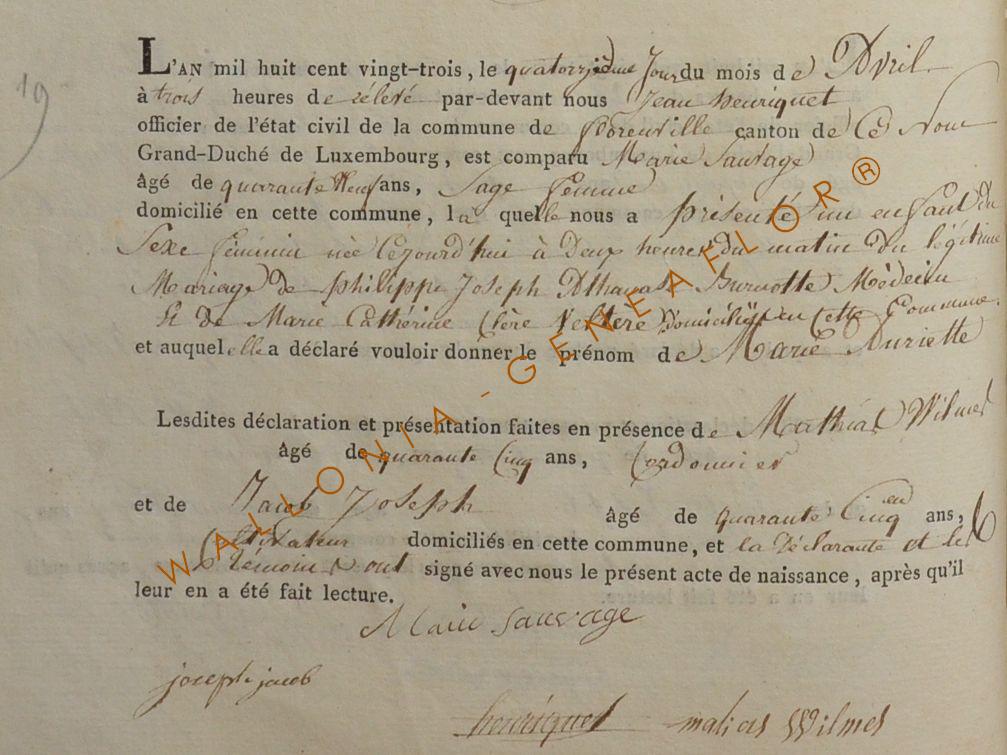 19
L'AN mil huit cent vingt-trois, le quatorzième Jour du mois de Avril
à trois heures de rélevé par-devant nous Jean henriquet
officier de l'état civil de la commune de florenville canton de Ce Nom
Grand-Duché de Luxembourg, est comparu Marie Sauvage
âgé de quarante Neuf ans, Sage femme
domicilié en cette commune, la quelle nous a présenté un enfant du
Sexe féminin née Cejourd'hui à Deux heures du matin du légitime
Mariage de philippe Joseph Athanase Burnotte Médecin
Et de Marie Cathérine domiciliés en Cette Commune
et auquel elle a déclaré vouloir donner le prénom de Marie
Lesdites déclaration et présentation faites en présence de Mathias Wilmes
âgé de quarante Cinq ans, Cordonnier
et de Jacob Joseph âgé de quarante Cinq ans,
Cultivateur domiciliés en cette commune, et la Déclarante et les
témoins ont signé avec nous le présent acte de naissance, après qu'il
leur en a été fait lecture.
Marie Sauvage
joseph jacob
henriquet matias Wilmes
WALLONIA-GENEAFLOR®